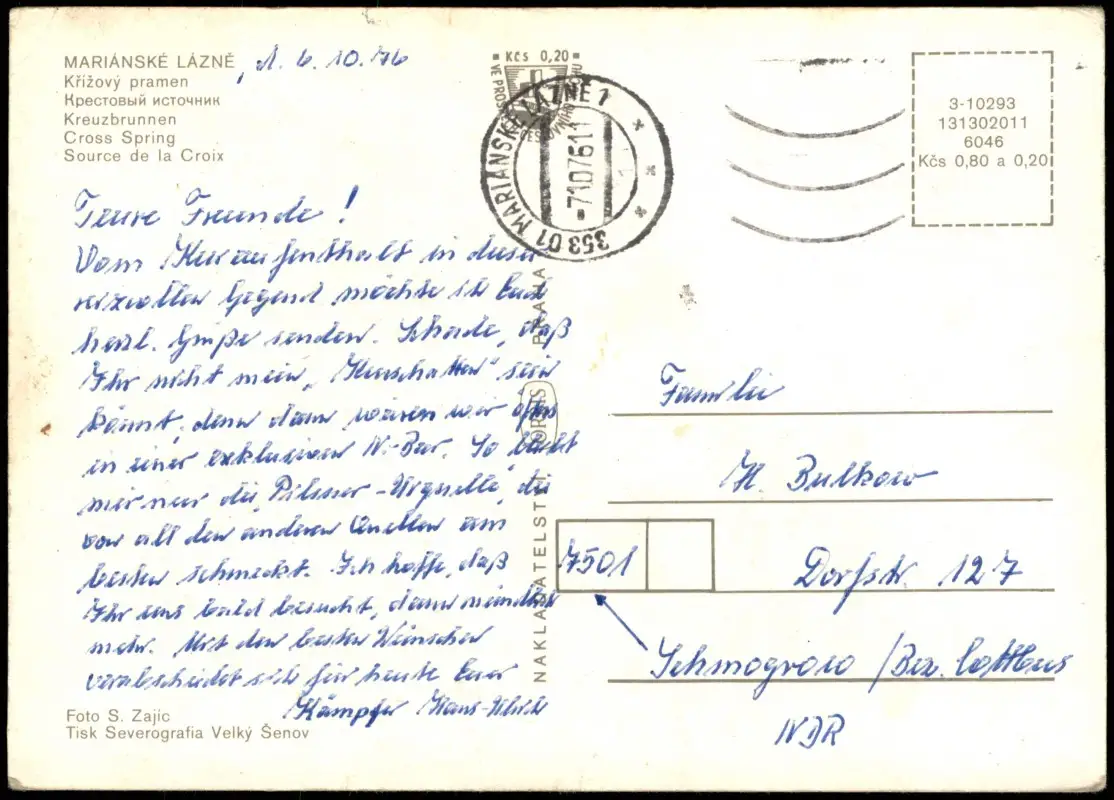 MARIÁNSKÉ LÁZNĚ, d. 6.10.76
Křížový pramen
Крестовый источник
Kreuzbrunnen
Cross Spring
Source de la Croix
Teure Freunde!
Vom Kuraufenthalt in dieser
reizvollen Gegend möchte ich Euch
herzl. Grüße senden. Schade, daß
Ihr nicht mein „Kurschatten" sein
könnt, denn dann wären wir öfter
in einer exklusiven N.-Bar. So bleibt
mir nur die Pilsner-Urquelle, die
von all den anderen Quellen am
besten schmeckt. Ich hoffe, daß
Ihr uns bald besucht, dann mündlich
mehr. Mit den besten Wünschen
verabschiedet sich für heute Euer
Kämpfer Hans-Ulrich
Foto S. Zajic
Tisk Severografia Velký Šenov
NAKLADATELSTVÍ ORBIS PRAHA
Kčs 0,20
353 01 MARIÁNSKÉ LÁZNĚ 1
-7.10.76 11
3-10293
131302011
6046
Kčs 0,80 a 0,20
Familie
H. Bulkow
7501
Dorfstr. 127
Schmogrow /Bez. Cottbus
NDR